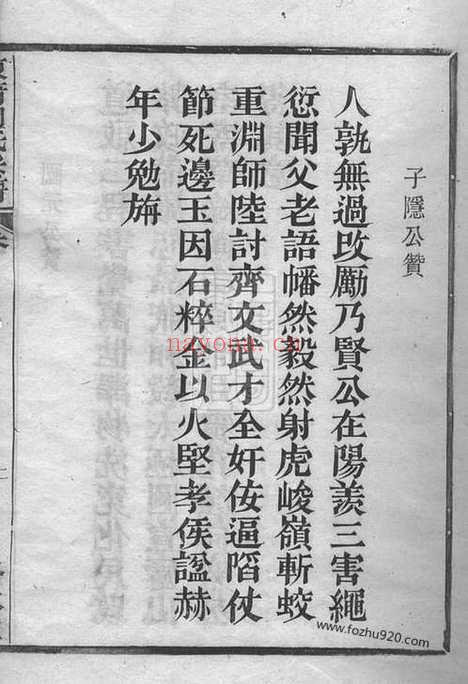 子隱公贊
人孰無過改勵乃賢公在陽羨三害繩
愆聞父老語幡然毅然射虎峻嶺斬蛟
重淵師陸討齊文武才全奸佞逼陷仗
節死邊玉因石粹金以火堅孝侯諡赫
年少勉旃
nayona.cn
www.fozhu920.com